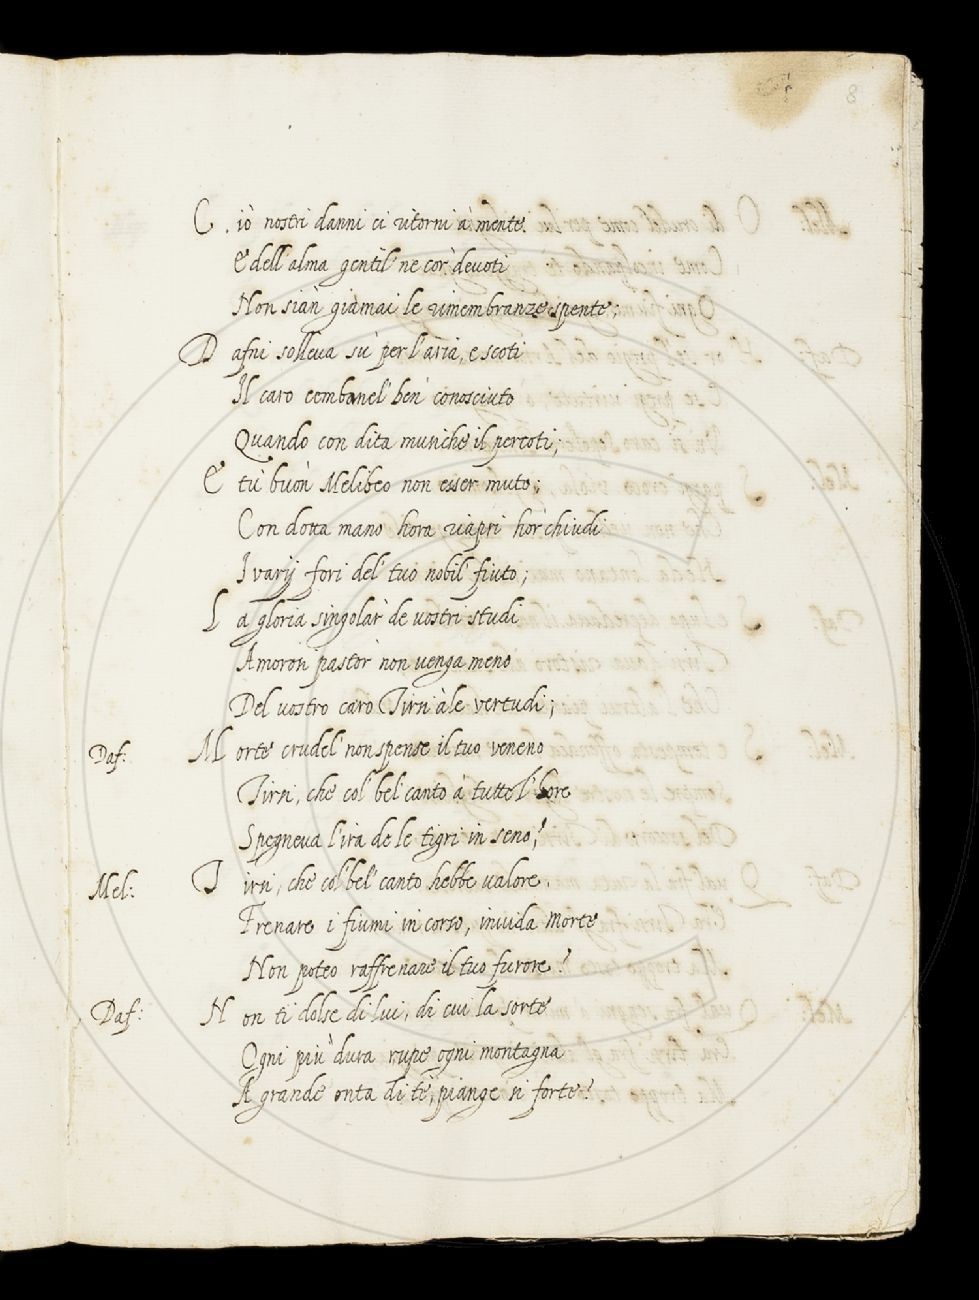 8
Ciò nostri danni ci ritorni à mente.
E dell'alma gentil' ne cor' devoti
Non sian' giàmai le rimembranze spente;
Dafni solleva sù per l'aria, e scoti
Il caro cembanel' ben' conosciuto
Quando con dita muniche il percoti;
E tù buon' Melibeo non esser muto;
Con dotta mano hora riapri hor' chiudi
I varij fori del' tuo nobil' fiuto;
La gloria singolar' de vostri studi
Amoron' pastor' non venga meno
Del vostro caro Tirsi à le vertudi;
Daf: Morte crudel' non spense il tuo veneno
Tirsi, che col' bel' canto à tutte l'hore
Spegneva l'ira de le tigri in seno?
Mel: Tirsi, che col' bel' canto hebbe valore.
Frenare i fiumi in corso, invida Morte
Non poteo raffrenare il tuo furore?
Daf: Non ti dolse di lui, di cui la sorte
Ogni più dura rupe ogni montagna
A grande onta di te, piange si forte?